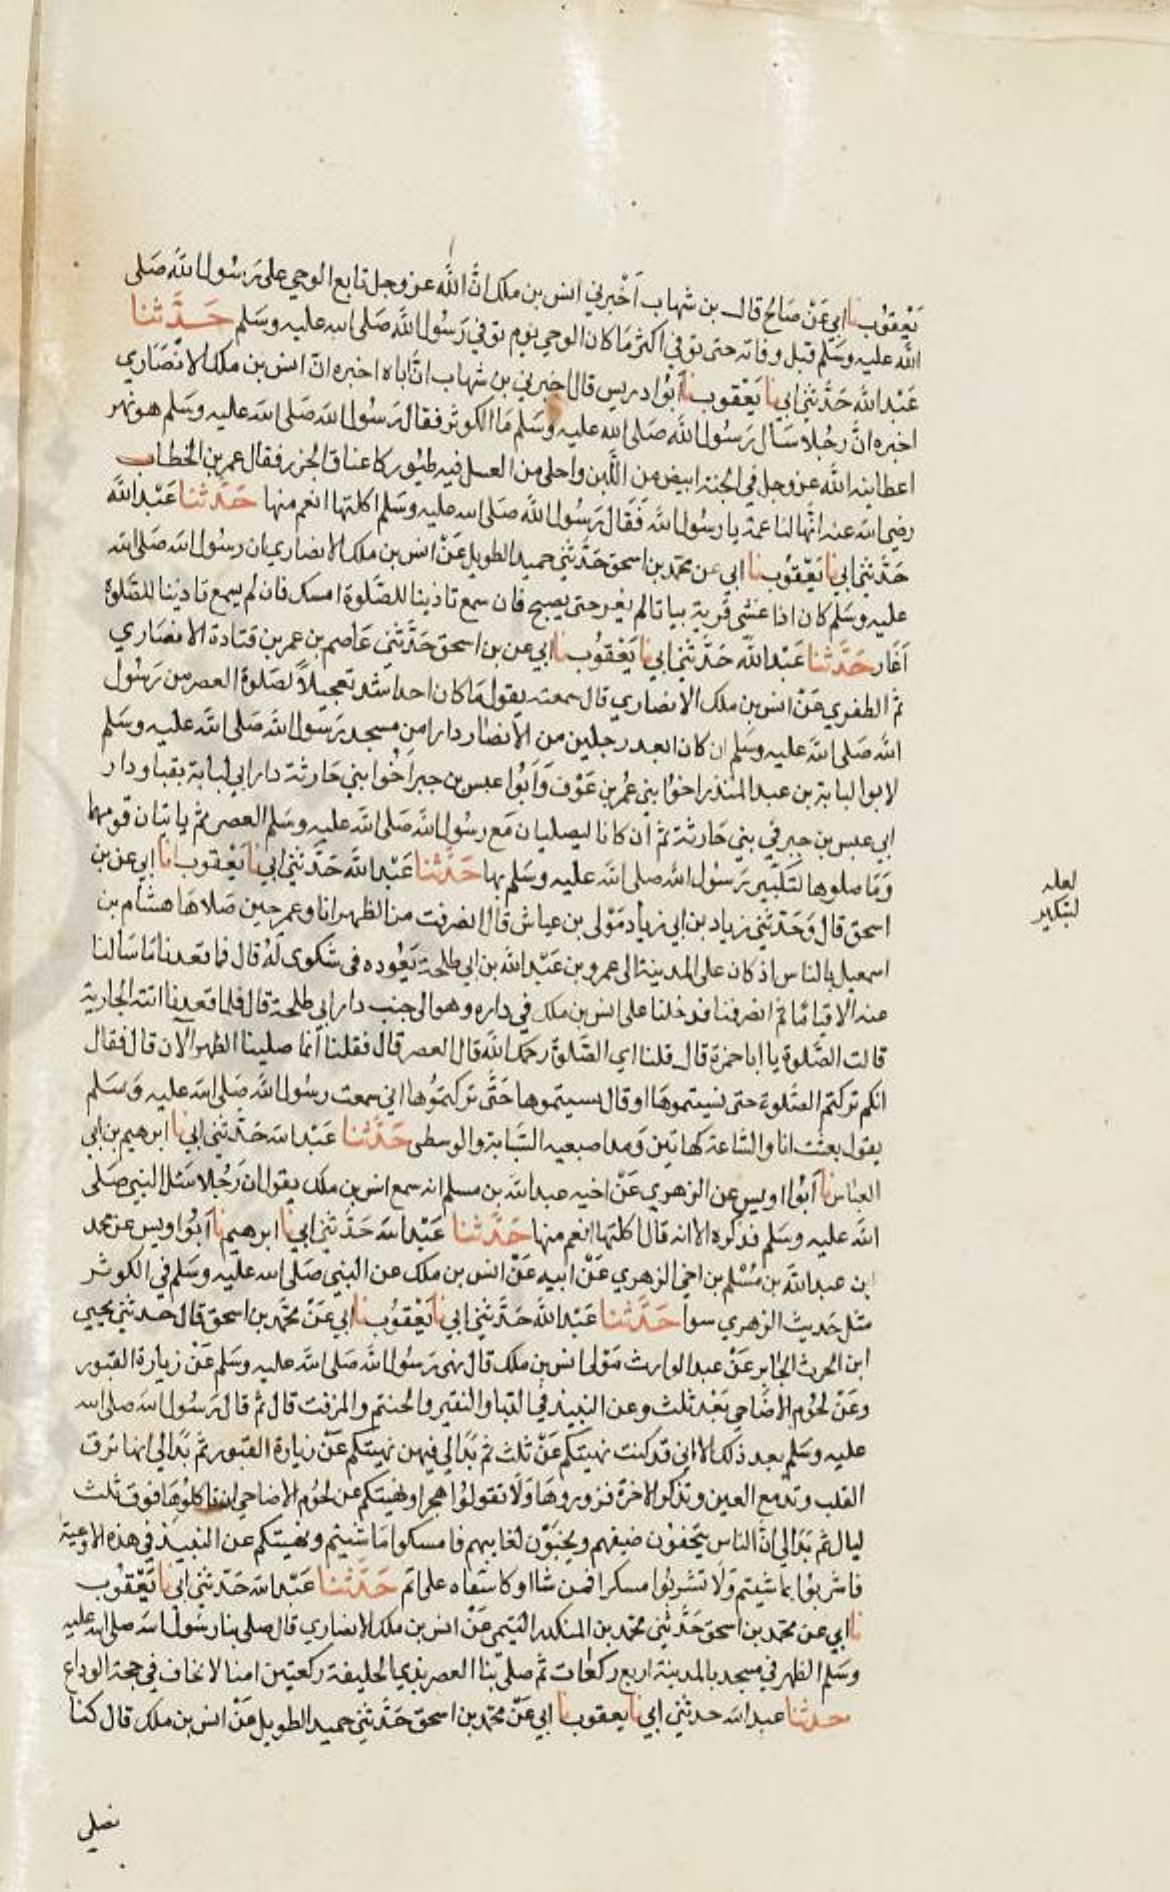 يَعْقوُب نا ابي عَنْ صَالح قال بن شهاب اَخْبرني انس بن ملك انَّ اللّٰه عز وجل تابع الوحي على رَسُول اللّٰه صَلى
اللّٰه عليه وسَلم قبل وفاته حتى توفي اكثر مَا كان الوحي يوم توفي رَسُول اللّٰه صَلى الله عليه وسَلم حَدَّثنا
عَبْد اللّٰه حَدَّثني ابي نا يَعْقوب نا اَبوُا ادريس قال اخبرني بن شهاب انَّ اباه اخبره انّ انس بن ملك الانصَاري
اخبره انَّ رجُلاً سَأل رَسُول اللّٰه صَلى الله عليه وسَلم مَا الكوثر فقال رَسُول الله صَلى الله عليه وسَلم هو نهر
اعطانيه اللّٰه عز وجل في الجنة ابيض من اللَّبن واحلى من العسل فيه طيُور كاعناق الجزر فقال عمر بن الخطاب
رضي الله عنه انَّها لناعمة يا رسول اللّٰه فَقَال رَسُول اللّٰه صَلى الله عليه وسَلم اكلتها انعم منها حَدَّثنا عَبْد اللّٰه
حَدّثني ابي نا يَعْقوُب نا ابي عن محمّد بن اسحق حَدَّثني حميد الطويل عَنْ انس بن ملك الانصاري ان رسُول الله صَلى الله
عليه وسَلم كان اذا غَشى قرية بياتا لم يغر حتى يصبح فان سمع تاذينا للصَّلوة امسك فان لم يسمع تاذينا للصَّلوة
اَغَار حَدَّثنا عَبْد اللّٰه حَدَّثني ابي نا يَعْقوُب نا ابي عن بن اسحق حَدَّثني عَاصم بن عمر بن قتادة الانصَاري
ثم الظفري عَنْ انس بن ملك الانصاري قال سمعته يقول مَا كان احد اشد تعجيلاً لصَلوة العصر من رَسُول
الله صَلى الله عليه وسَلم ان كان ابعد رجلين من الأنصَار دارا من مسجد رَسُول الله صَلى الله عليه وسَلم
لابوا لبابة بن عبد المنذر اخوُا بني عُمر بن عَوْف وَاَبوُا عبس بن جبر اخوُا بني حَارثة دار ابي لبابة بقبا ودار
ابي عبس بن جبر في بني حَارثة ثم ان كانا ليصليان مَع رسُول الله صَلى الله عليه وسَلم العصر ثم ياتيان قومهما
وَمَا صلوها لتلبيب رَسُول الله صلى الله عليه وسَلم بها حَدَّثنا عَبْد اللّٰه حَدَّثني ابي نا يَعْقوب نا ابي عن بن
اسحق قال وَحَدّثني زياد بن ابي زياد مَوْلى بن عياش قال انصرفت من الظهر انا وعمر حين صَلاهَا هشام بن
اسمعيل بالناس اذ كان على المدينة الى عمرو بن عَبْد الله بن ابي طلحة نَعُوده في شكوى لَهُ قال فما قعدنا مَا سَالنا
عنه الّا قيَامًا ثم انصرفنا فدخلنا على انس بن ملك في داره وهو الى جنب دار ابي طلحة قال فلما قعدنا اتته الجارية
قالت الصَّلوة يا ابا حمزة قال قلنا اي الصَّلوة رحمك اللّٰه قال العصر قال فقلنا انما صلينا الظهر الآن قال فقال
انكم تركتم الصَّلوة حتى نسيتموهَا او قال نسيتموها حَتّى تركتمُوها اني سمعت رسُول اللّٰه صَلى الله عليه وَسَلم
يقول بعثت انا والسَّاعة كهاتين ومد اصبعيه السَّبابة والوسطى حَدَّثنا عَبْد الله حَدَّثني ابي نا ابرهيم بن ابي
العبّاس نا اَبوُا اويس عن الزهري عَنْ اخيه عبد الله بن مسلم انه سمع انس بن ملك يقول ان رَجُلا سئل النبي صَلى
الله عليه وسَلم فذكره الا انه قال اكلتها انعم منها حَدَّثنا عَبْد الله حَدَّثني ابي نا ابرهيم نا اَبوُا اويس عن محمد
بن عبد اللّٰه بن مُسْلم بن اخي الزهري عَنْ ابيه عَنْ انس بن ملك عن النبي صَلى الله عليه وسَلم في الكوثر
مثل حَديث الزهري سوا حَدَّثنا عَبْد اللّٰه حَدَّثني ابي نا يَعْقوُب نا ابي عَنْ محمّد بن اسحق قال حدثني يحيى
ابن الحرث الجابر عَنْ عبد الوارث مَوْلى انس بن ملك قال نهى رَسُول الله صَلى الله عليه وسَلم عَنْ زيارة القبور
وعَنْ لحوُم الاضَاحي بَعْد ثلث وعن النبيذ في الدبا والنقير والحنتم والمزفت قال ثم قال رَسُول الله صَلى الله
عليه وسَلم بعد ذلك الا اني قد كنت نهيتكم عَنْ ثلث ثم بَدَا لي فيهن نهيتكم عَنْ زيارة القبور ثم بَدَا لي انها ترق
القلب وتدمع العين وتذكر الاخرة فزوروهَا وَلَا تقولوُا هجرا ونهيتكم عن لحوُم الاضاحي ان تاكلوُهَا فوق ثلث
ليال ثم بَدَا لي انّ الناس يتحفوُن ضيفهم ويخبَوّن لغايبهم فامسكوا مَا شئيتم ونهيتكم عن النبيذ في هذه الاوعية
فاشربوُا بما شيتم وَلَا تشربُوا مسكرا فمن شا اوكا سقاه على اثم حَدَّثنا عَبْد الله حَدّثني ابي نا يَعْقوُب
نا ابي عن محمّد بن اسحق حَدَّثني محمّد بن المنكدر التيَمي عَنْ انس بن ملك الانصَاري قال صلى بنا رسُول الله صلى الله عليه
وسَلم الظهر في مسجد بالمدينة اربع ركعَات ثم صلى بنا العصر بذي الحليفة ركعتين امنا لا نخاف في حجة الوداع
حدثنا عبد الله حدثني ابي نا يعقوب نا ابي عَنْ محمّد بن اسحق حَدَّثني حميد الطويل عَنْ انس بن ملك قال كنا
لعله
لتبكير
نصلي